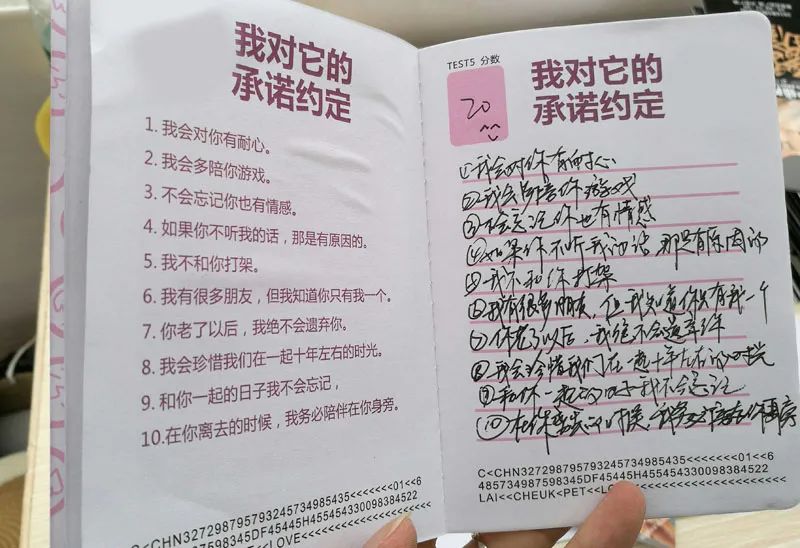 我对它的
承诺约定
1. 我会对你有耐心。
2. 我会多陪你游戏。
3. 不会忘记你也有情感。
4. 如果你不听我的话，那是有原因的。
5. 我不和你打架。
6. 我有很多朋友，但我知道你只有我一个。
7. 你老了以后，我绝不会遗弃你。
8. 我会珍惜我们在一起十年左右的时光。
9. 和你一起的日子我不会忘记，
10.在你离去的时候，我务必陪伴在你身旁。
C<CHN327298795793245734985435<<<<<<<01<<6
485734987598345DF45445H455454330098384522
<<LOVE<<<<<<<<<<<<<<<<<<
TEST5 分数
20
我对它的
承诺约定
①我会对你有耐心
②我会多陪你游戏
③不会忘记你也有情感
④如果你不听我的话，那是有原因的
⑤我不和你打架
⑥我有很多朋友，但我知道你只有我一个
⑦你老了以后，我绝不会遗弃你
⑧我会珍惜我们在一起十年左右的时光
⑨和你一起的日子我不会忘记
⑩在你离去的时候，我务必陪伴在你身旁
C<CHN327298795793245734985435<<<<<<<01<<6
485734987598345DF45445H455454330098384522
LAI<<CHEUK<PET<<LOVE<<<<<<<<<<<<<<<<<<